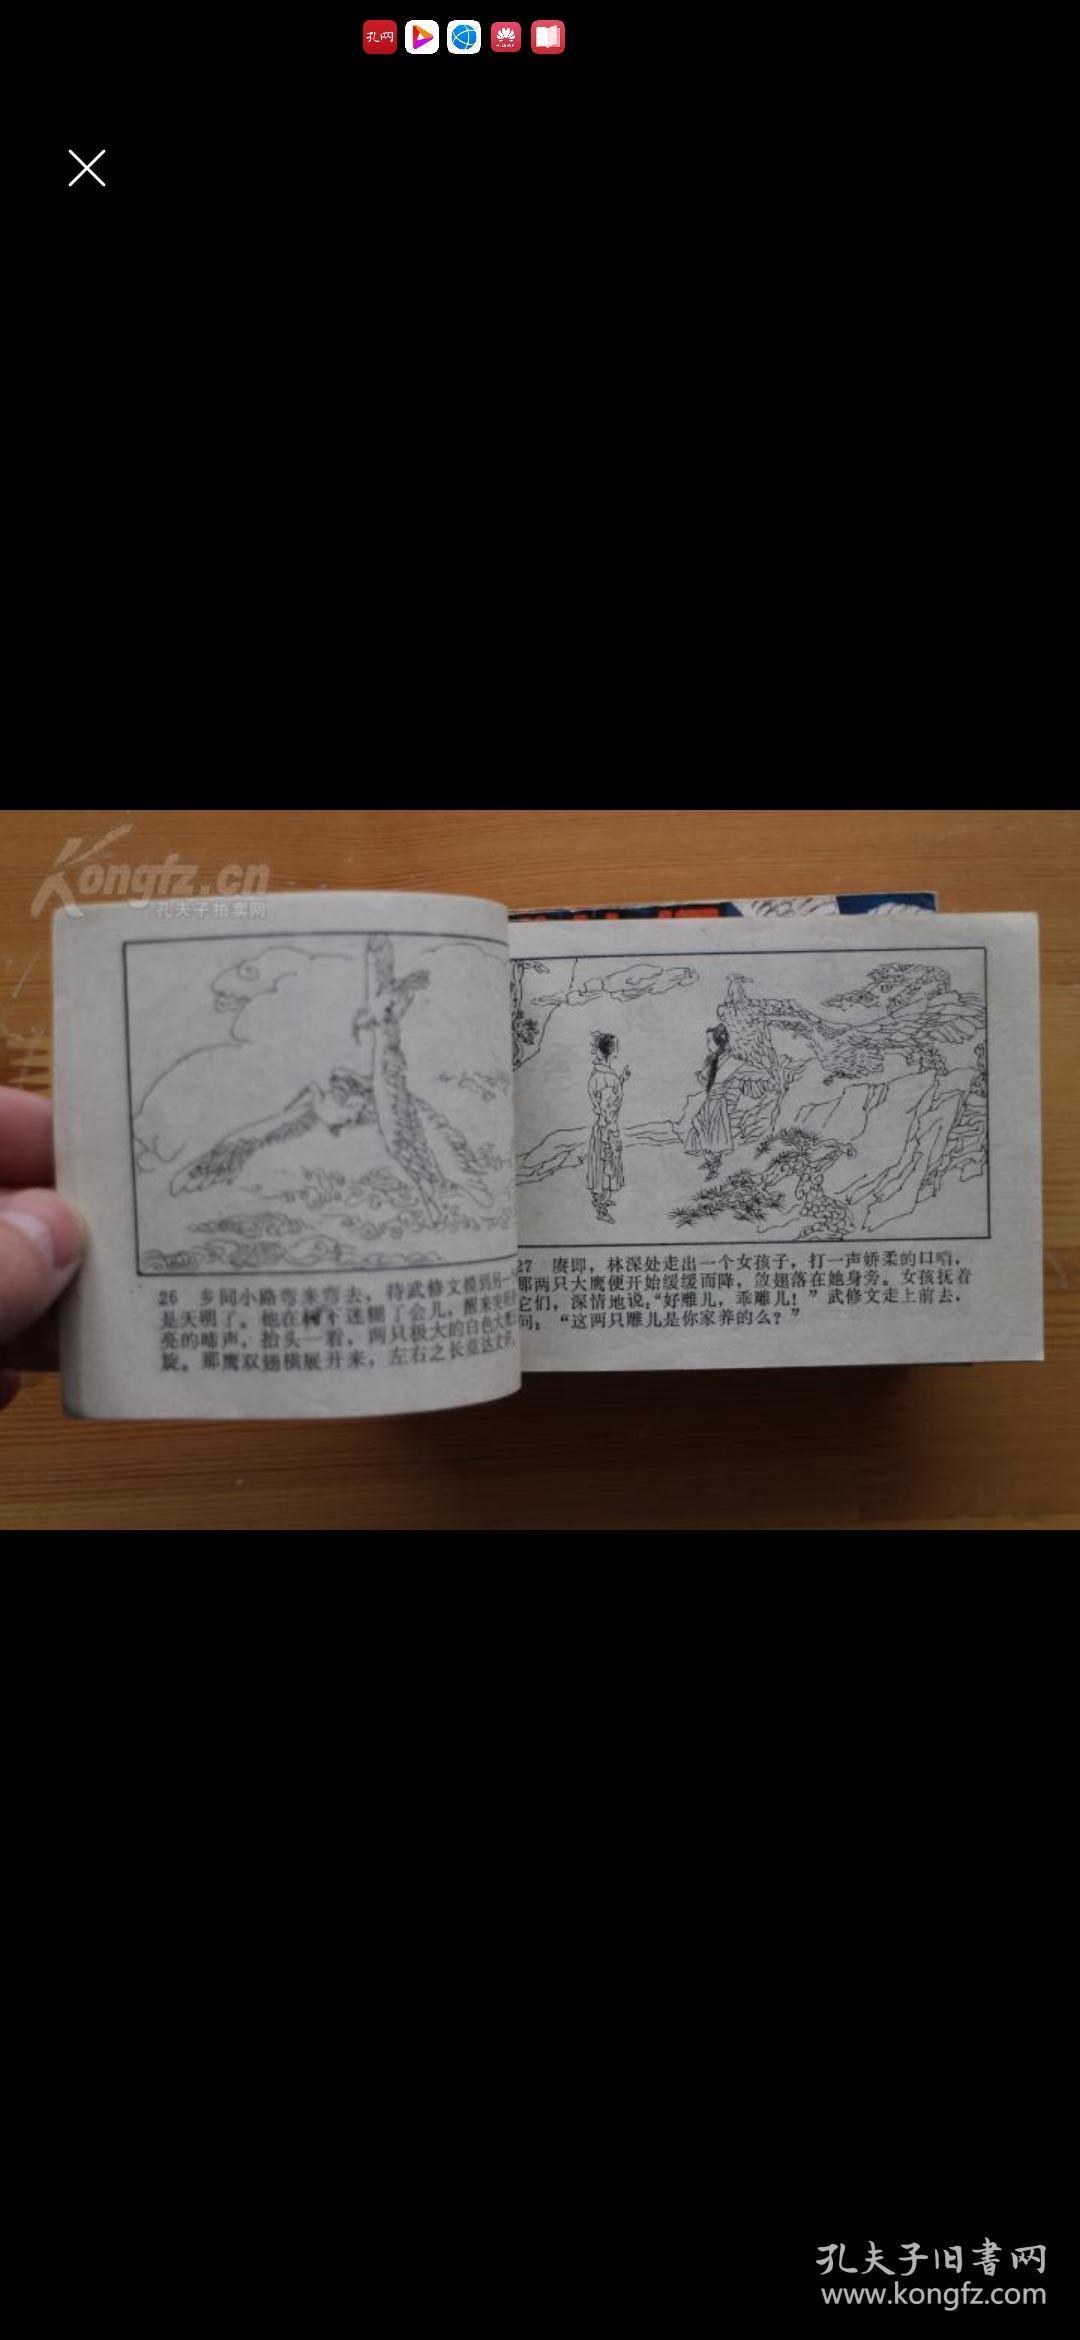 孔网
Kongfz.cn
孔夫子拍卖网
26 乡间小路弯来弯去，待武修文摸到另一
是天明了。他在树下迷糊了会儿，醒来
亮的啼声，抬头一看，两只极大的白色大鹰
旋。那鹰双翅横展开来，左右之长竟达丈
27 赓即，林深处走出一个女孩子，打一声娇柔的口哨，
那两只大鹰便开始缓缓而降，敛翅落在她身旁。女孩抚着
它们，深情地说：“好雕儿，乖雕儿！”武修文走上前去，
问：“这两只雕儿是你家养的么？”
孔夫子旧書网
www.kongfz.com